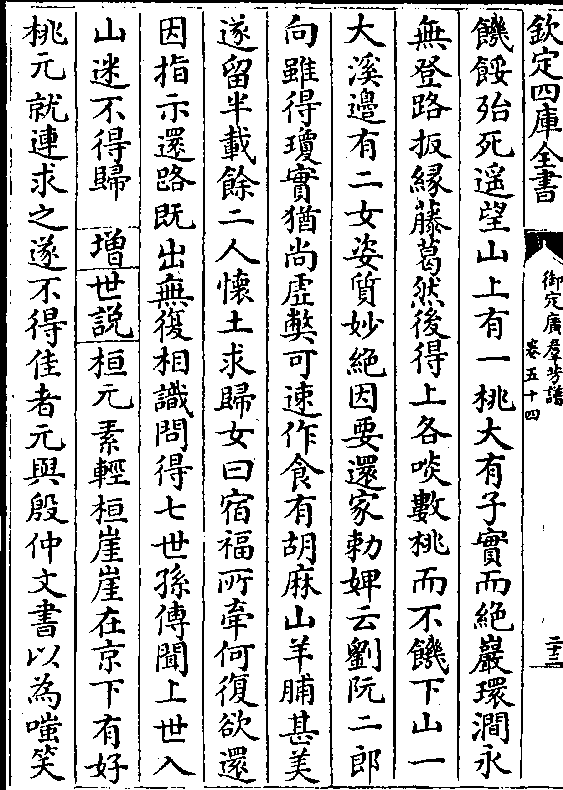 欽定四庫全書
御定廣羣芳譜
卷五十四
二十三
饑餒殆死遥望山上有一桃大有子實而絶巖環澗永
無登路扳緣藤葛然後得上各啖數桃而不饑下山一
大溪邊有二女姿質妙絶因要還家勅婢云劉阮二郎
向雖得瓊實猶尚虚弊可速作食有胡麻山羊脯甚美
遂留半載餘二人懐土求歸女曰宿福所牽何復欲還
因指示還路既出無復相識問得七世孫傳聞上世入
山迷不得歸 增世說桓元素輕桓崖崖在京下有好
桃元就連求之遂不得佳者元與殷仲文書以為嗤笑